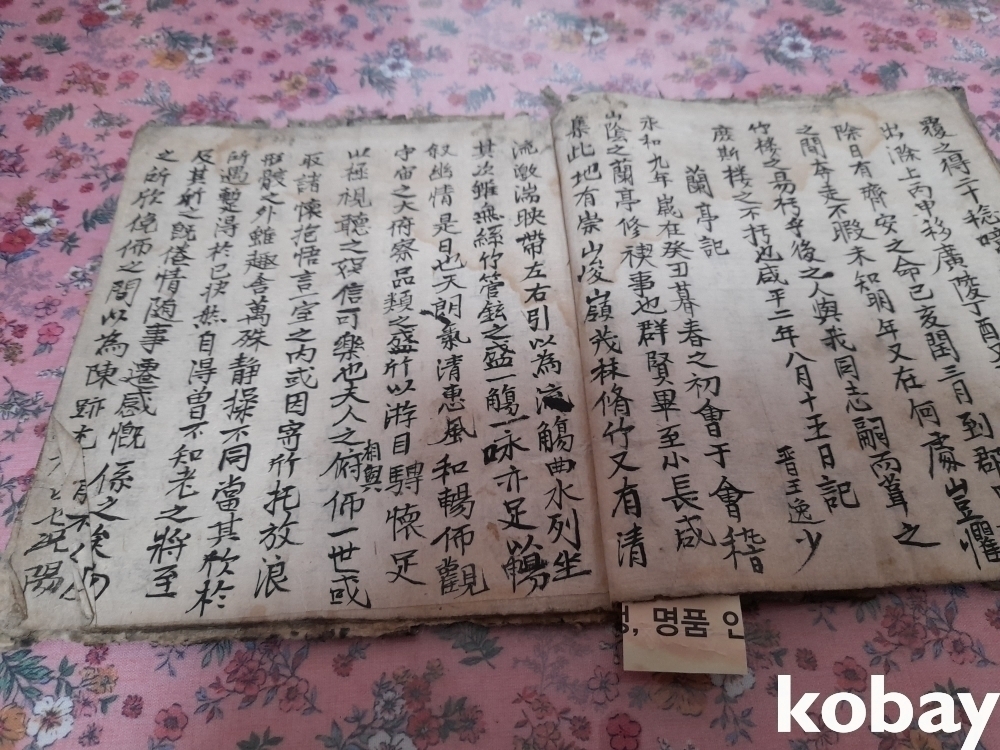 覆之得二十稔噫
出滁上丙申移廣陵丁酉又
除日有齊安之命己亥閏三月到郡
之間奔走不暇未知明年又在何處豈懼
竹樓之易朽乎後之人與我同志嗣而葺之
庶斯樓之不朽也咸平二年八月十五日記
蘭亭記 晋王逸少
永和九年歲在癸丑暮春之初會于會稽
山陰之蘭亭修禊事也群賢畢至小長咸
集此地有崇山峻嶺茂林脩竹又有清
流激湍映帶左右引以為流觴曲水列坐
其次雖無絲竹管絃之盛一觴一咏亦足以暢
叙幽情是日也天朗氣清惠風和暢仰觀
宇宙之大府察品類之盛所以游目騁懷足
以極視聽之娛信可樂也夫人之相與府仰一世或
取諸懷抱悟言一室之內或因寄所托放浪
形骸之外雖趣舍萬殊靜操不同當其欣於
所遇暫得於已快然自得曾不知老之將至
及其所之旣倦情隨事遷感慨係之矣向
之所欣俛仰之間以為陳跡尤
명품 인
kobay